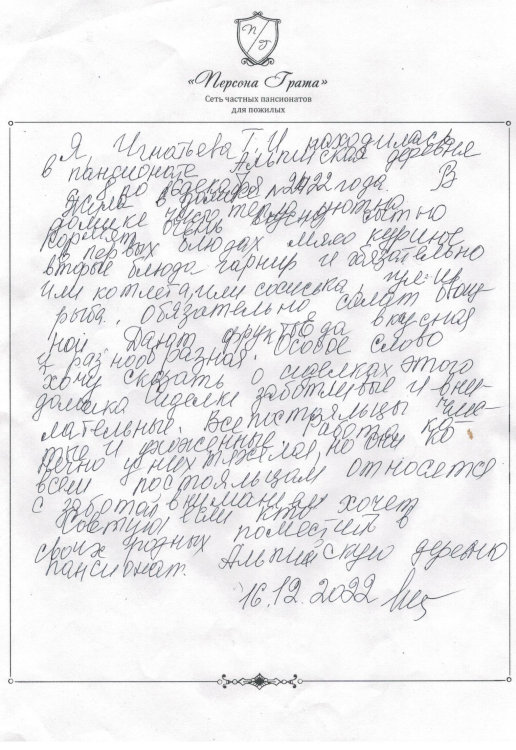 П/Г
«Персона Грата»
Сеть частных пансионатов
для пожилых
Я, Игнатьева Т.И находилась
в пансионате Альпийская деревня
до декабря 2022 года. В
Жила в домике №4
домике чисто тепло уютно
кормят очень вкусно сытно
в первых блюдах мясо куриное
вторые блюда гарнир и обязательно
или котлета, или сосиска, или
рыба. Обязательно салат овощ
ной Дают фрукты Еда вкусная
и разнообразная. Особое слово
хочу сказать о сиделках этого
домика сиделки заботливые и вни
мательные. Все постояльцы чис
тые и ухоженные работа ко
нечно у них тяжелая, но они ко
всем постояльцам относется
с заботой вниманием
Советую если кто хочет
своих родных поместить в
пансионат. Альпийскую деревню
16.12.2022